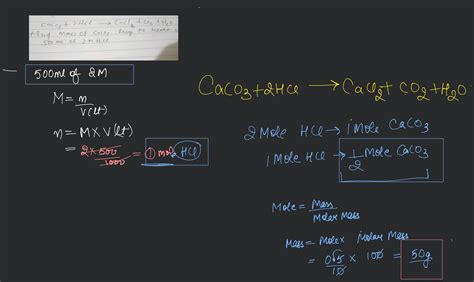 CaCO3 + 2HCl → CaCl2 + CO2 + H2O
Find Mass of CaCO3 to
500 ml of 2M HCl
500ml of 2M
M = n
V(lt)
n = M × V(lt)
= 2 × 500
1000
= 1 mol HCl
CaCO3 + 2HCl → CaCl2 + CO2 + H2O
2 Mole HCl → 1 Mole CaCO3
1 Mole HCl → 1/2 Mole CaCO3
Mole = Mass
Molar Mass
Mass = Mole × Molar Mass
= 05
10
× 100 = 50g